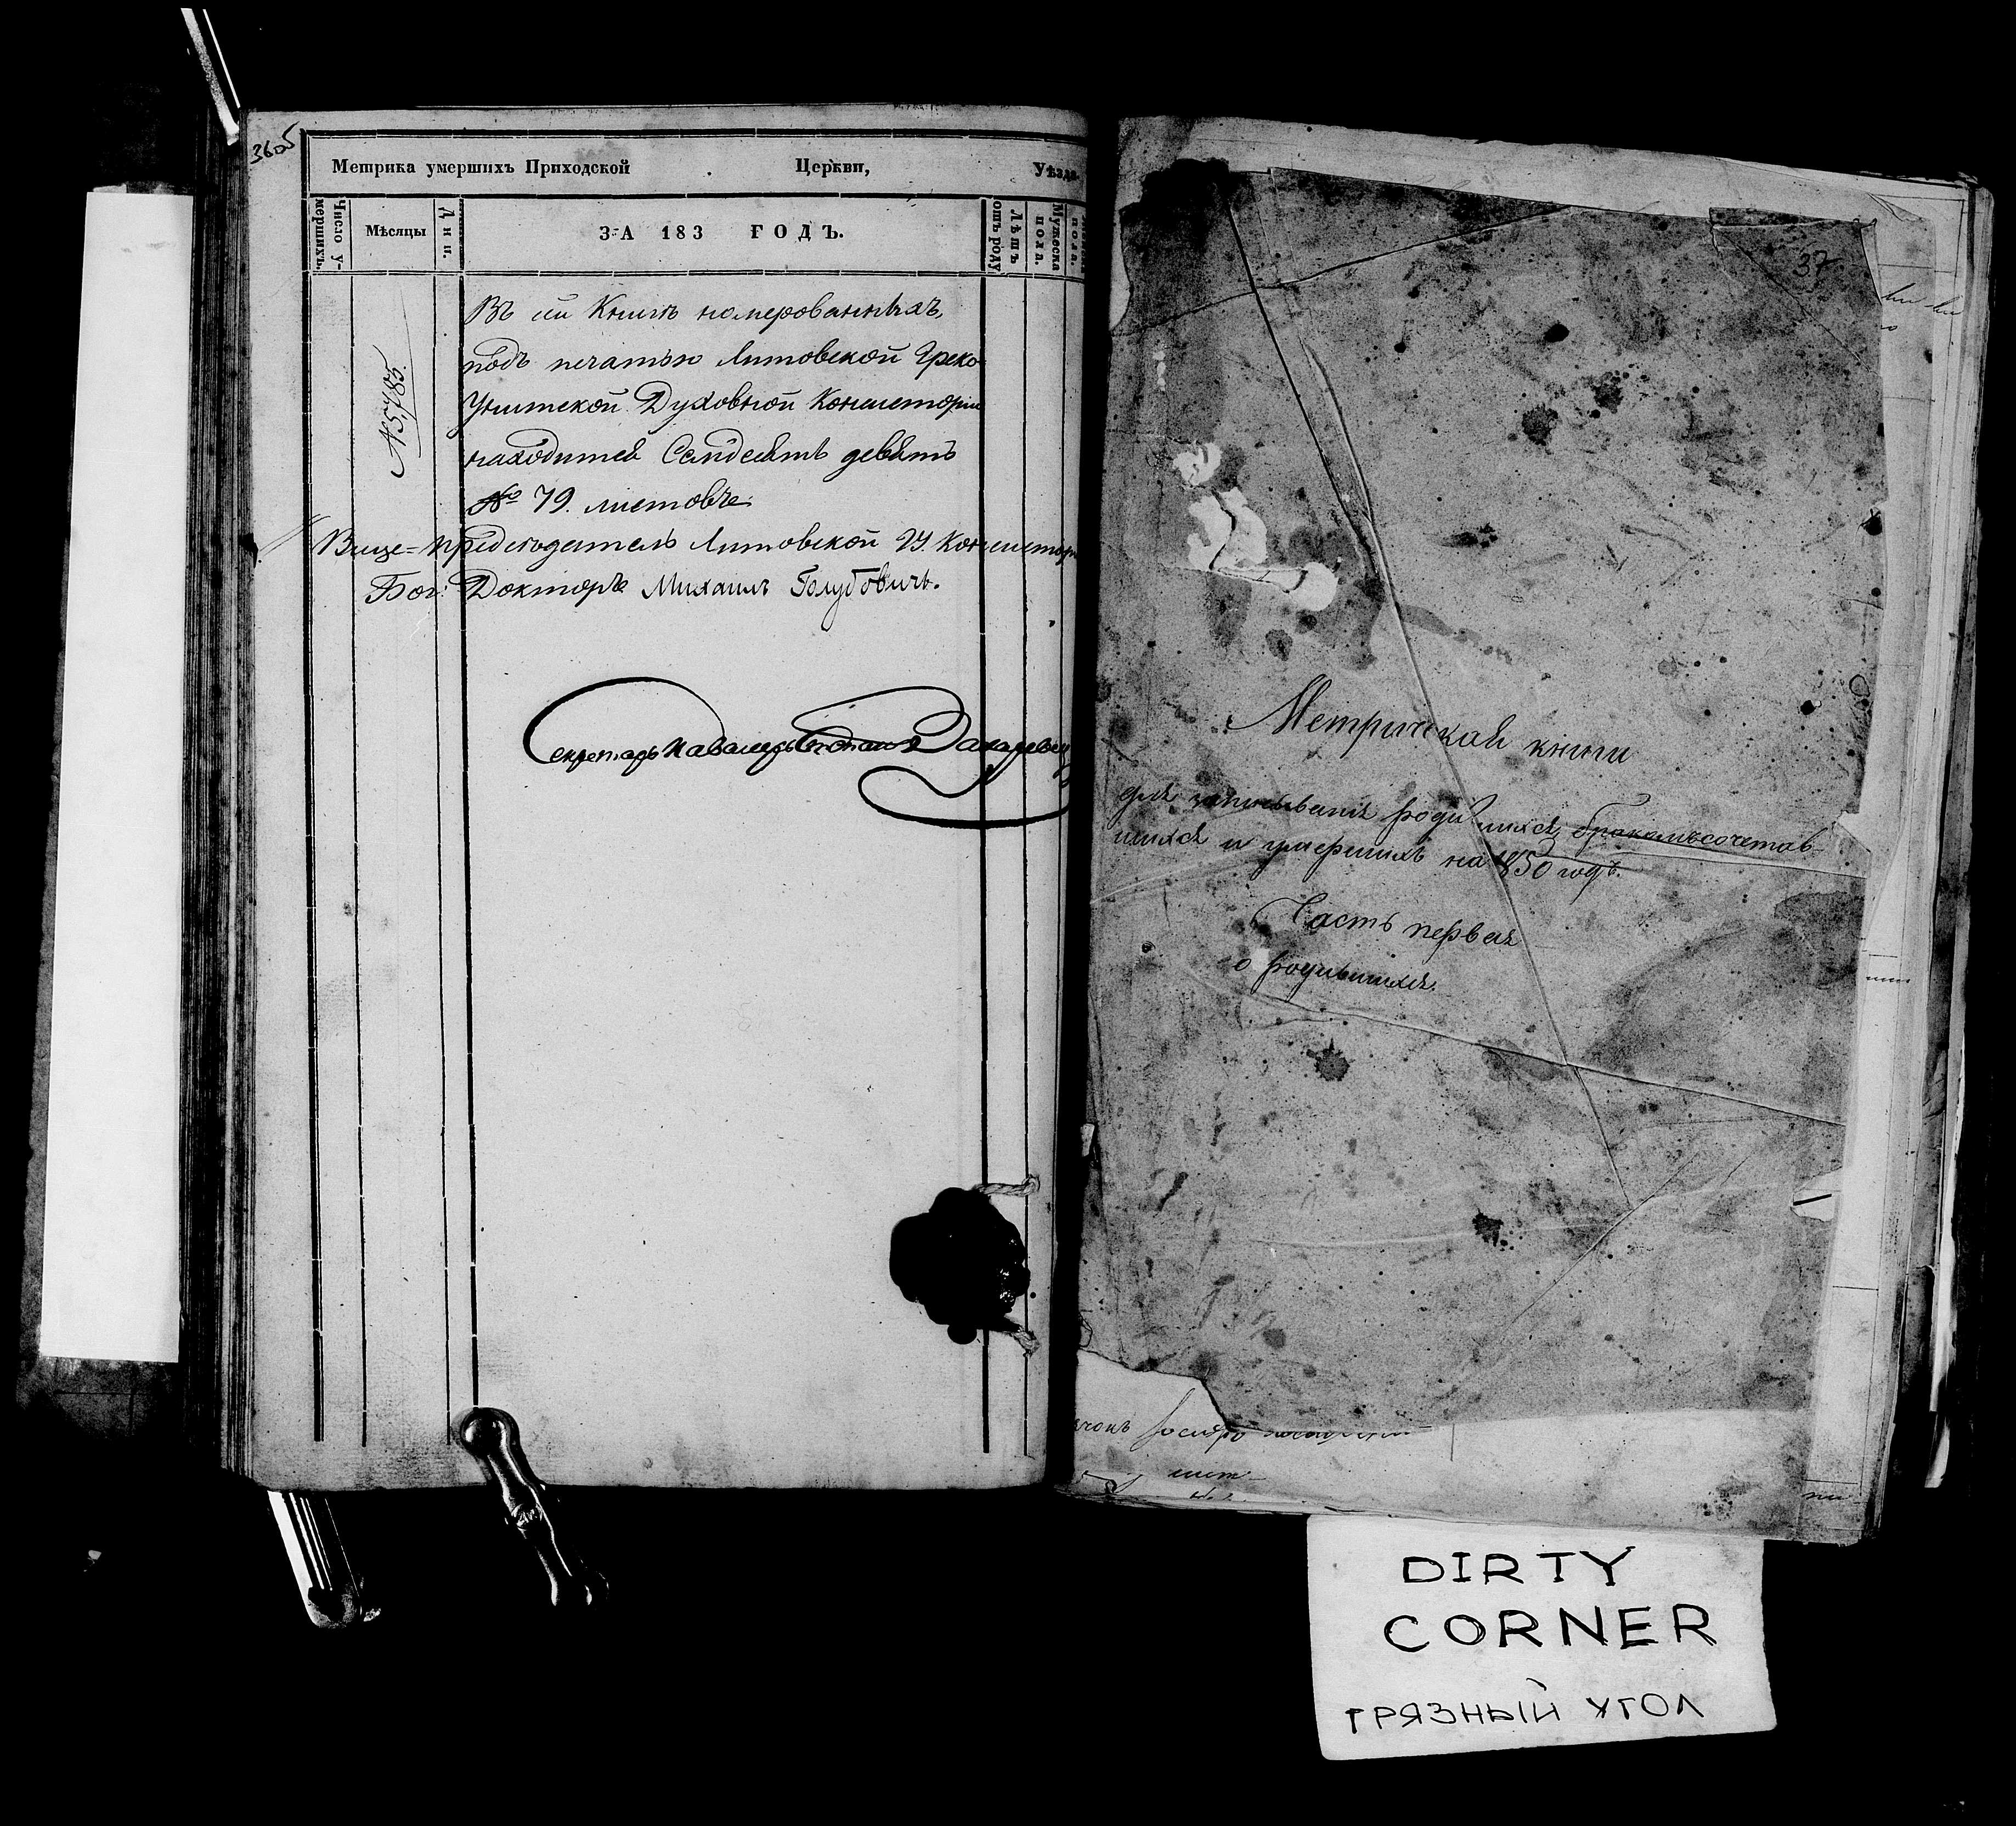 36об
Метрика умершихъ Приходской Церкви, Уѣзда
Число умершихъ.
Мѣсяцы
Дни.
ЗА 183 ГОДЪ.
Лѣтъ отъ роду
Мужеска пола.
№ 5,785.
Въ сій Книгѣ номерованныхъ,
подъ печатью Литовской Греко
Унитской Духовной Консисторіи
находится Семдесятъ девять
№ 79. листовъ
Вице=Предсѣдатель Литовской ГУ. Консисторіи
Бог: Докторъ Михаилъ Голубовичъ.
Секретарь Кавалеръ Захаревичъ
37
Метрической книги
для записыванія родившихся, бракомъ сочетав-
шихся и умершихъ на 1850 годъ.
Часть первая
о родившихся.
DIRTY
CORNER
ГРЯЗНЫЙ УГОЛ